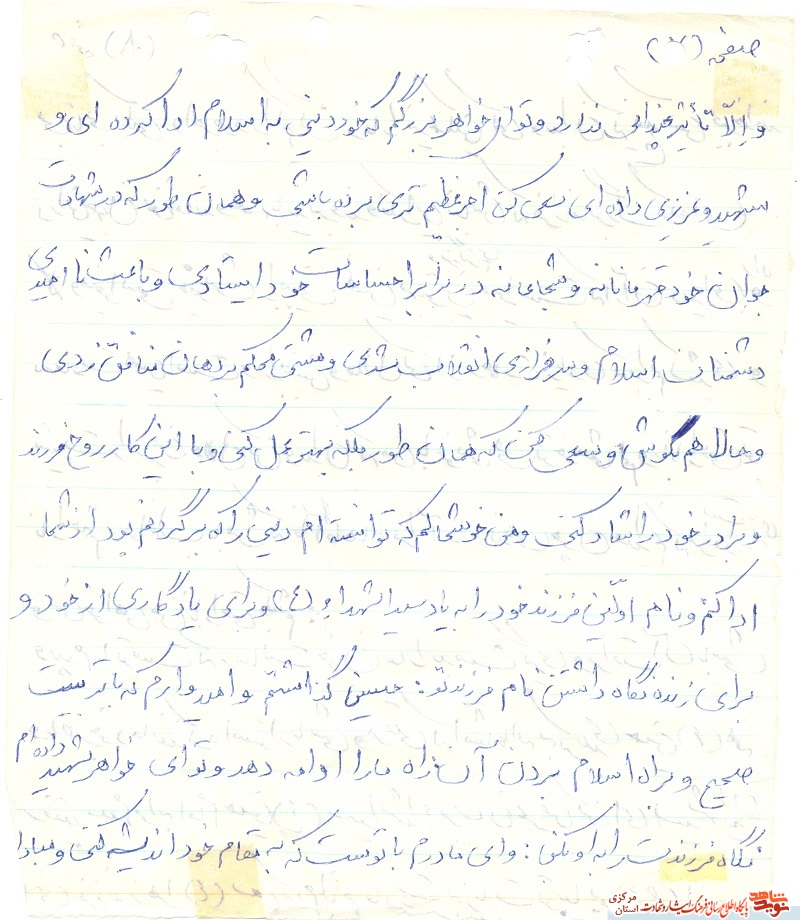 صفحه (۷)
و الّا تأثیر چندانی ندارد و توای خواهر بزرگم که خود دینی به اسلام ادا کرده ای و
شهید و عزیزی داده ای سعی کن اجر عظیم تری برده باشی و همان طور که در شهادت
جوان خود قهرمانانه و شجاعانه در برابر احساسات خود ایستادی و باعث ناامیدی
دشمنان اسلام و سرفرازی انقلاب شدی و مشتی محکم بر دهان منافق زدی
و حالا هم بکوش و سعی کن که همان طور بلکه بهتر عمل کنی و با این کار روح فرزند
و برادر خود را شاد کنی و من خوشحالم که توانسته ام دینی را که بر گردنم بود از شما
ادا کنم و نام اولّین فرزند خود را به یاد سیدالشهداء (ع) و برای یادگاری از خود و
برای زنده نگاه داشتن نام فرزند تو: حسین گذاشتم و امیدوارم که با تربیت
صحیح و براه اسلام بردن آن راه ما را ادامه دهد و تو ای خواهر شهید داده ام
نگاه فرزندت را به او بکنی: و ای مادرم با توست که به مقام خود اندیشه کنی و مبادا
نوید شاهد
پایگاه اطلاع رسانی فرهنگ ایثار و شهادت استان مرکزی